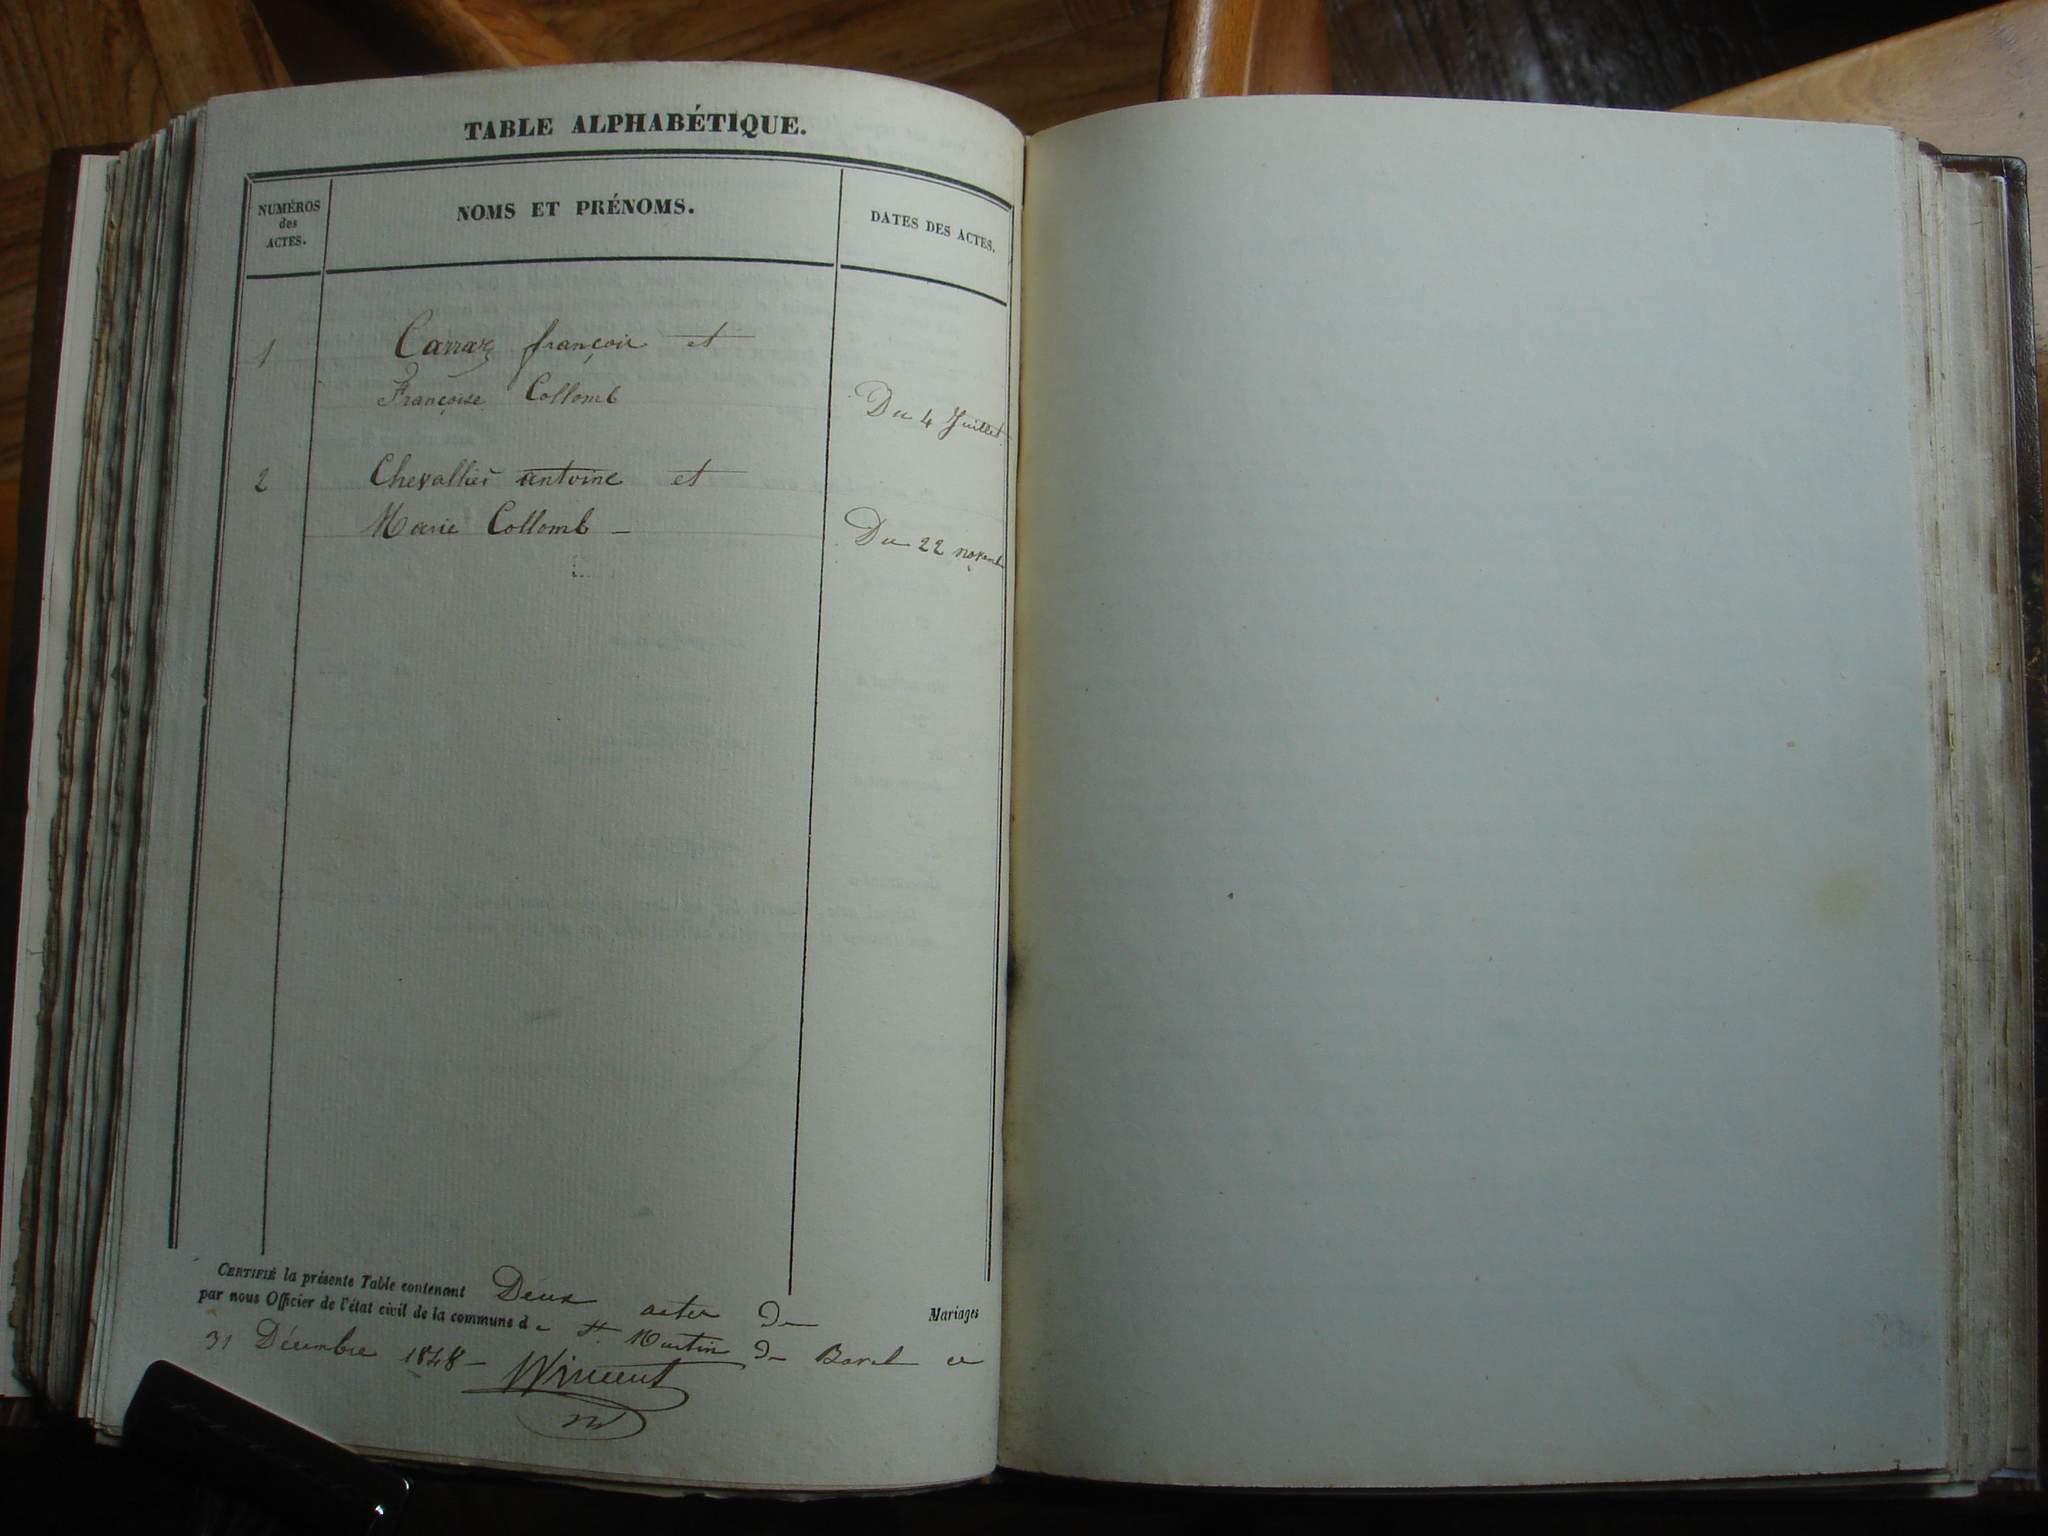 TABLE ALPHABÉTIQUE.
NUMÉROS
des
ACTES.
NOMS ET PRÉNOMS.
DATES DES ACTES.
1 Carraz françois et
Françoise Collomb Du 4 Juillet
2 Chevallier antoine et
Marie Collomb Du 22 novembre
CERTIFIÉ la présente Table contenant Deux actes de Mariages
par nous Officier de l'état civil de la commune de St. Martin De Bavel ce
31 Décembre 1848
Vincent